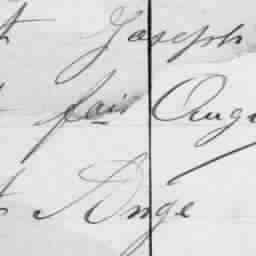 t Joseph
fair Augu
t Ange